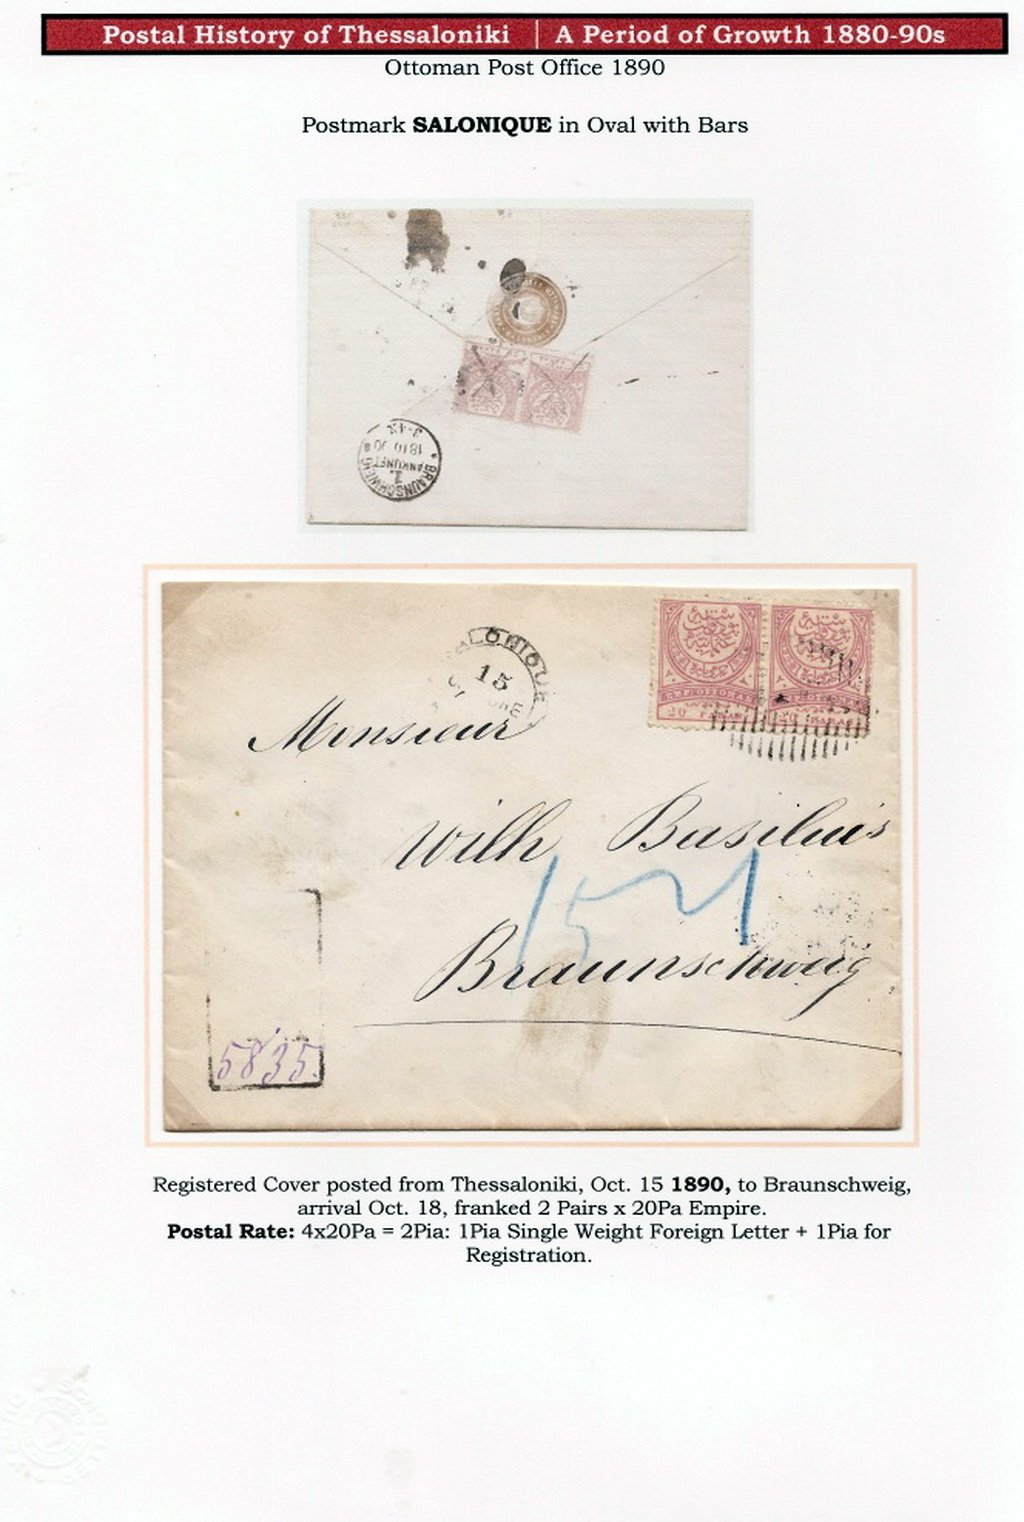 Postal History of Thessaloniki | A Period of Growth 1880-90s
Ottoman Post Office 1890
Postmark SALONIQUE in Oval with Bars
BRAUNSCHWEIG
1.
ANKUNFT
18 10 90
3-4N.
SALONIQUE
15
Monsieur
Wilh Basilius
Braunschweig
5835.
20
20
Registered Cover posted from Thessaloniki, Oct. 15 1890, to Braunschweig,
arrival Oct. 18, franked 2 Pairs x 20Pa Empire.
Postal Rate: 4x20Pa = 2Pia: 1Pia Single Weight Foreign Letter + 1Pia for
Registration.